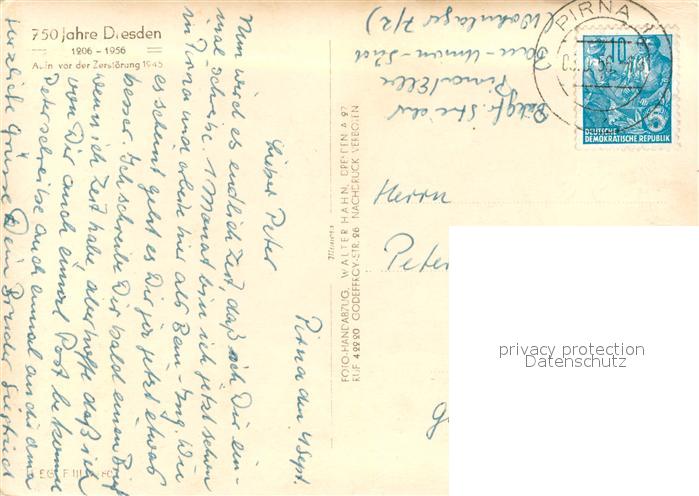 750 Jahre Dresden
1206 - 1956
vor der Zerstörung 1945
Pirna den 4. Sept.
Lieber Peter
Nun wird es endlich Zeit, daß ich Dir ein-
mal schreibe. 1 Monat bin ich jetzt schon
in Pirna und arbeite hier als Bau-Ing. Wie
es scheint geht es Dir ja jetzt etwas
besser. Ich schreibe Dir bald einen Brief
wenn ich Zeit habe, aber hoffe daß ich
von Dir auch einmal Post bekomme
Peter schreibe auch einmal an die
Herzliche Grüsse Dein Bruder Siegfried
FOTO-HANDABZUG. WALTER HAHN, DRESDEN A 27
RUF 42220 GODEFFROY-STR. 26 NACHDRUCK VERBOTEN
Pirna/Elbe
Bau-Union-Süd
(Wohnlager 7/2)
PIRNA
10
DEUTSCHE
DEMOKRATISCHE REPUBLIK
Herrn
Peter
privacy protection
Datenschutz